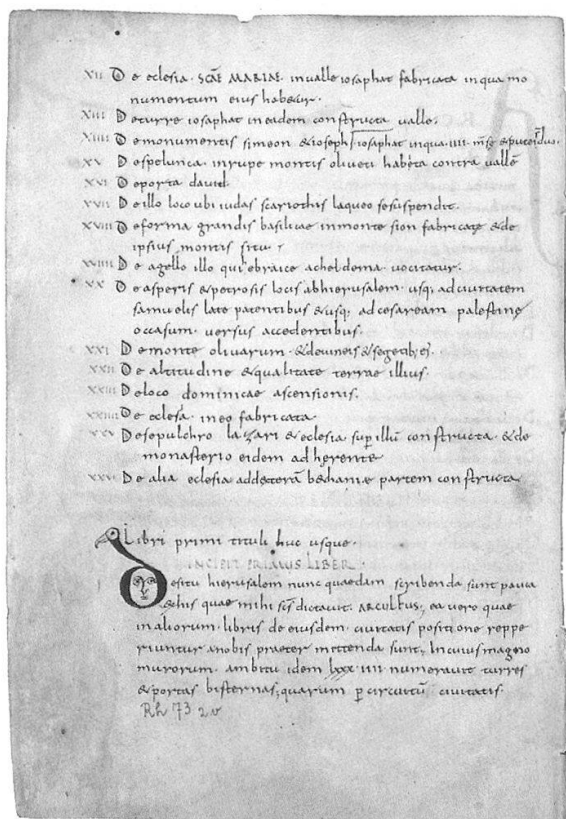 XII De eclesia · SCAE MARIAE · in valle iosaphat fabricata in qua mo
numentum eius habetur ·
XIII De turre iosaphat in eadem constructa valle ·
XIIII De monumentis simeon & ioseph
XV De spelunca in rupe montis oliveti habeta contra vallē
XVI De porta david
XVII De illo loco ubi iudas scariothis laqueo se suspendit ·
XVIII De forma grandis basilicae in monte sion fabricate & de
ipsius montis situ ·
XVIIII De agello illo qui ebraice acheldema vocitatur ·
XX De asperis & petrosis locis ab hierusalem usq; ad civitatem
samuelis late patentibus & usq; ad cesaream palestine
occasum versus accedentibus ·
XXI De monte olivarum · & de vineis & segetib;
XXII De altitudine & qualitate terrae illius ·
XXIII De loco dominicae ascensionis ·
XXIIII De eclesia in eo fabricata
XXV De sepulchro lazari & eclesia sup illū constructa & de
monasterio eidem adherente
XXVI De alia eclesia ad dexterā bethanie partem constructa
Libri primi tituli huc usque ·
INCIPIT PRIMUS LIBER ·
De situ hierusalem nunc quaedam scribenda sunt pauca
ex his quae mihi scs dictavit · ARCULFUS, ea vero quae
in aliorum · libris de eiusdem civitatis positione reppe
riuntur a nobis praetermettenda sunt, In cuius magno
murorum ambitu idem lxxx · IIII numeravit turres
& portas bis ternas; quarum p circuitū civitatis
Rh 73 2v